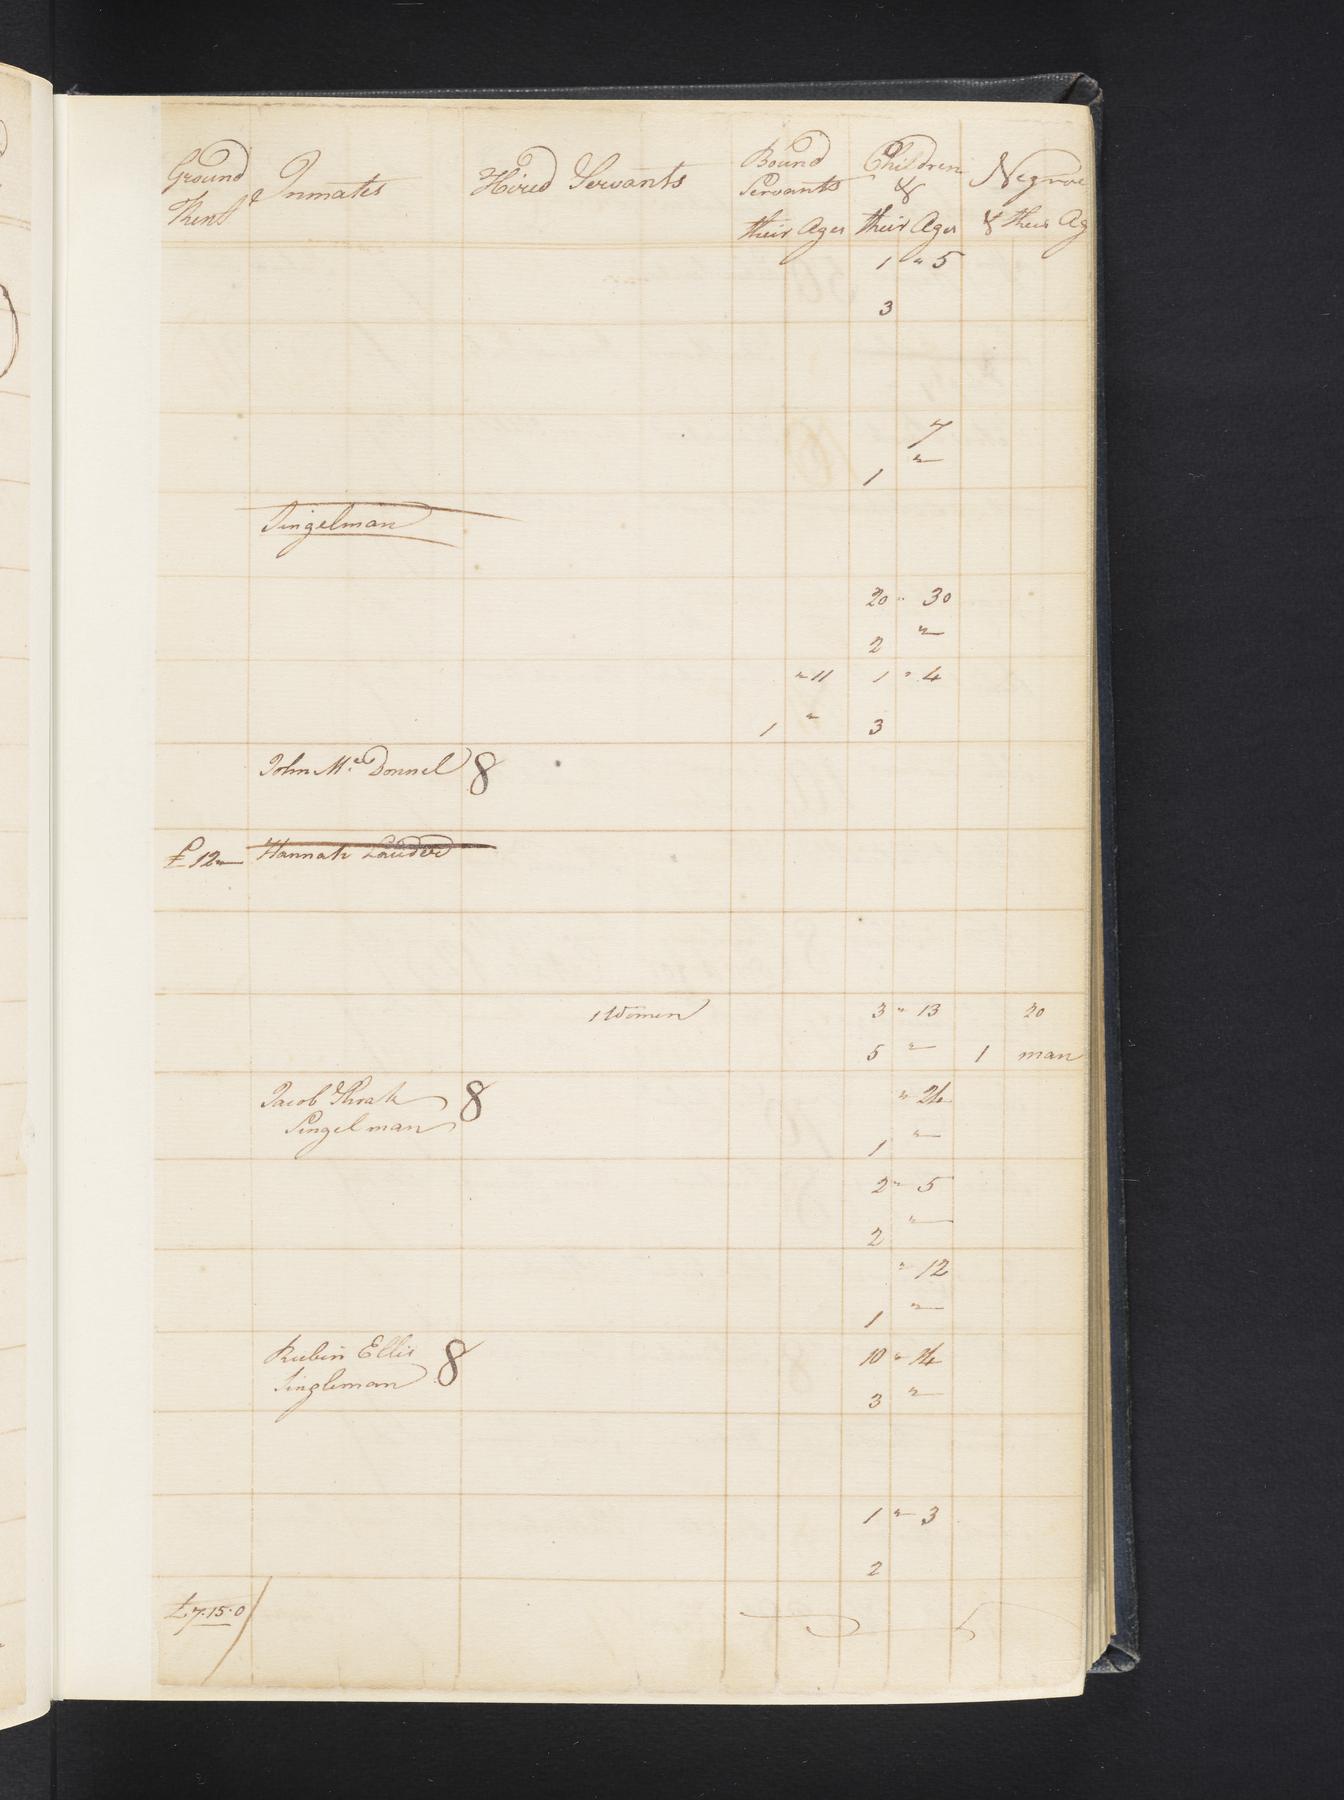 Ground Rent & Inmates Hired Servants Bound Servants their Ages Children & their Ages Negroe & their Ag
1 " 5
3
7
1 "
Singelman
20 " 30
2 "
" 11 1 " 4
1 " 3
John Mc Donnel 8
£ 12 Hannah
1 Women 3 " 13 20
5 " 1 man
Jacob 8 " 24
Singelman 1 "
2 " 5
2 "
" 12
1 "
Rubin Ellis 8 10 "
Singleman 3 "
1 " 3
2
£7.15.0